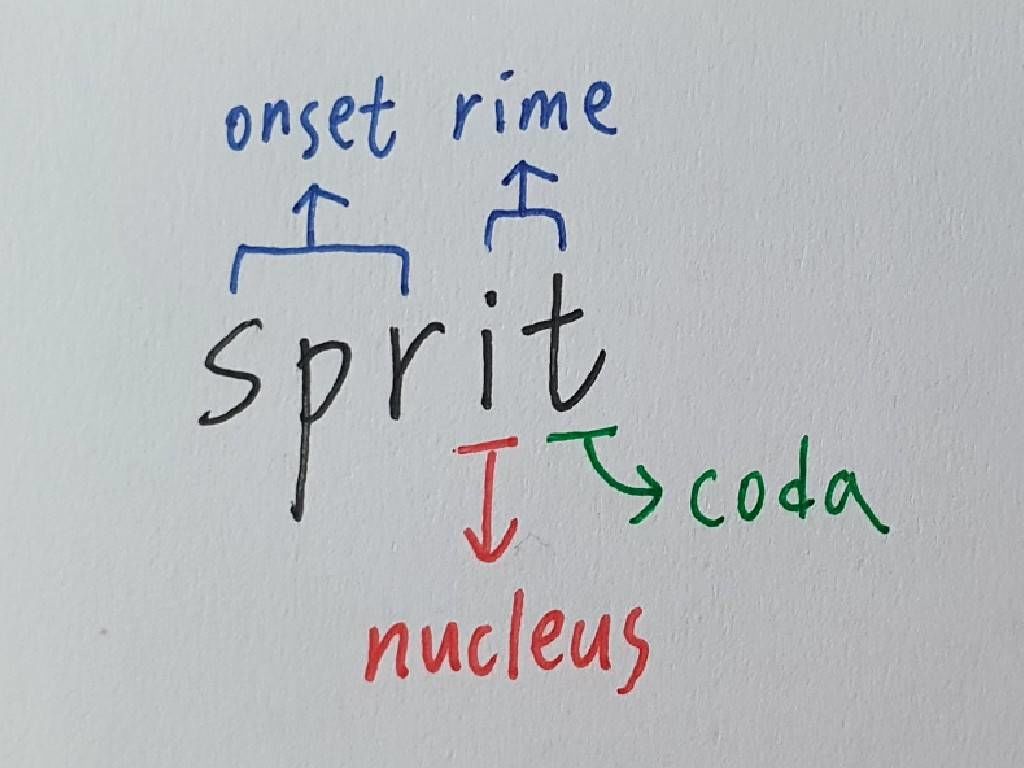 onset rime
sprit
coda
nucleus